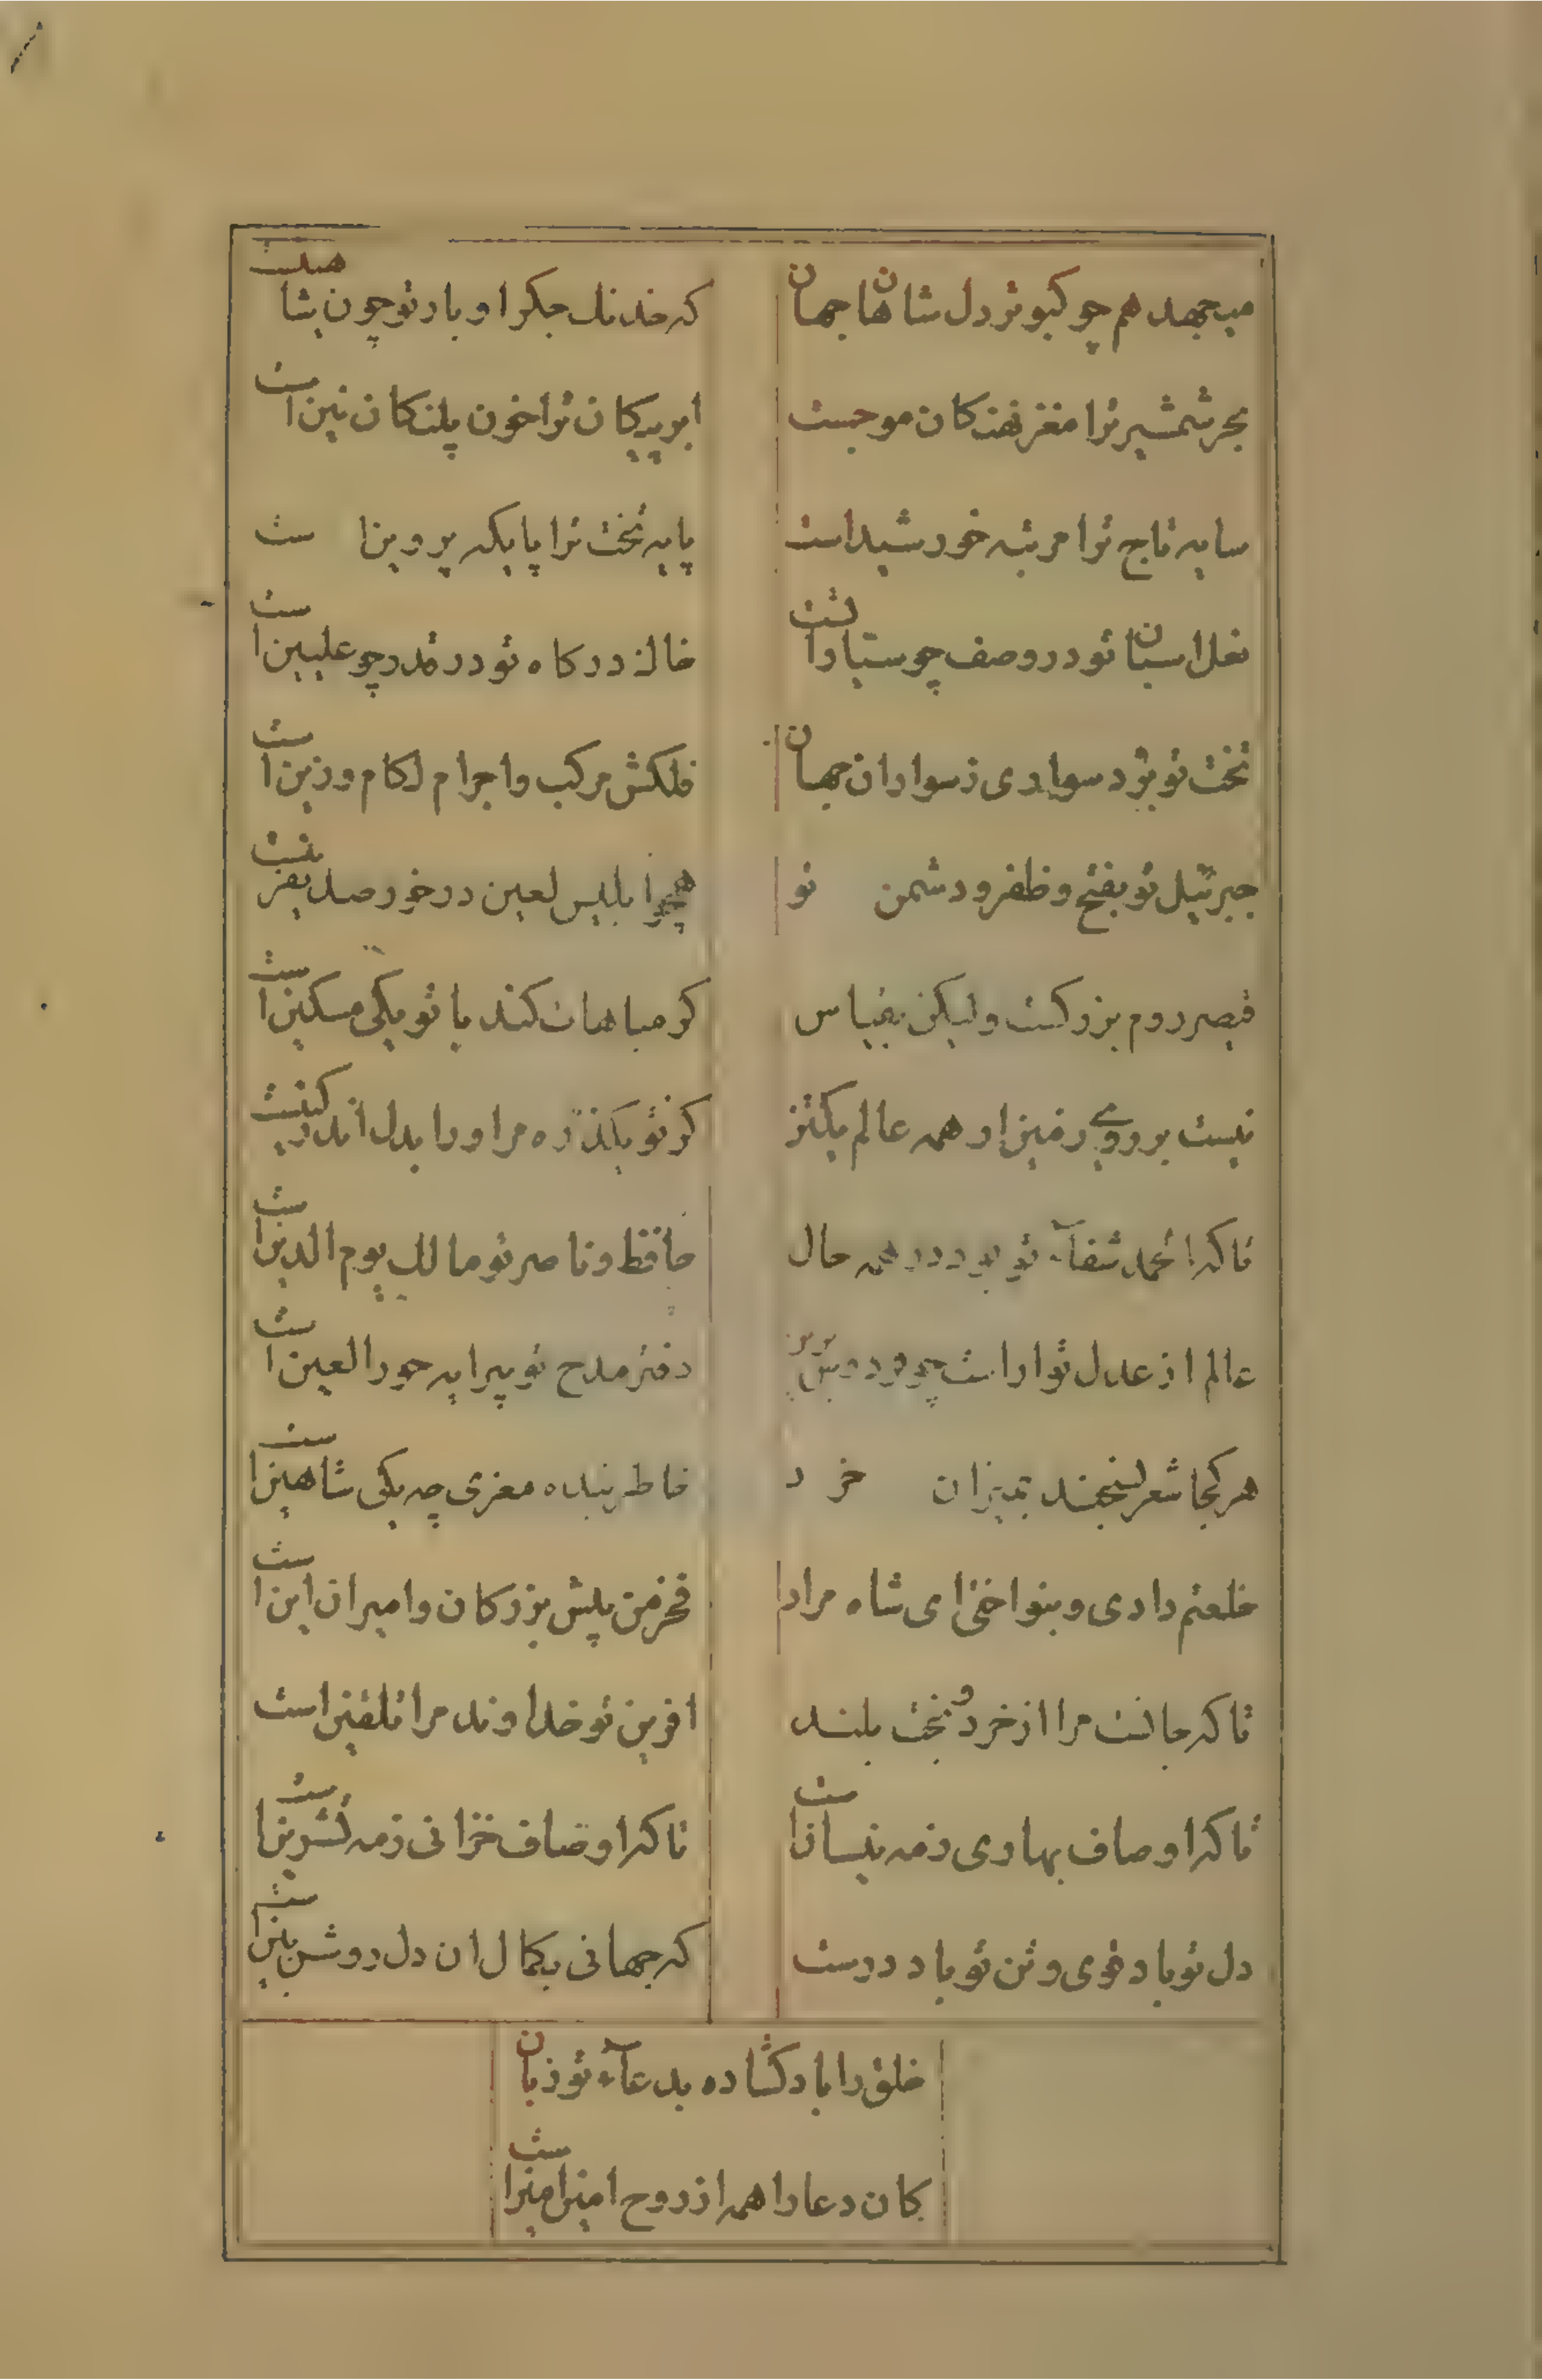 میجهد هم چو کبوتر دل شاهان جهان که خدنک جکر او بار تو چون شاهینست
بحر شمشیر ترا مغز نهنکان موجست ابر پیکان ترا خون پلنکان نین است
سایه تاج ترا مرتبه خورشیداست پایه تخت ترا پایکه پروینا ست
نعل اسبان تو در وصف چو ستارا است خاک درکاه تو در قدر چو علیین است
تخت تو بود سواری ز سواران جهان فلکش مرکب و اجرام لکام وزین است
جبرئیل تو بفتح و ظفر و دشمن تو همچو ابلیس لعین در خور صد نفرینست
قیصر روم بزرکست ولیکن بقیاس کر مباهات کند با تو یکی مسکین است
نیست بر روی زمین از همه عالم یکتن کز تو یکذره مر او را بدل اندر کینست
تاکه الحمد شفآء تو بود در همه حال حافظ و ناصر تو مالک یوم الدین است
عالم از عدل تو اراست چو فردوس برین دفتر مدح تو پیرایه حورالعین است
هر کجا شعر بسنجند بمیزان خرد خاطر بنده معزی چه یکی شاهین است
خلعتم دادی و بنواختی ای شاه مرا فخر من پیش بزرکان و امیران این است
تا که جانست مرا از خرد و بخت بلند افرین تو خداوند مرا تلقین است
تا که اوصاف بهاری ز مه نیسان است تا که اوصاف خزانی ز مه تشرین است
دل تو باد قوی و تن تو باد درست که جهانی بکمال ان دل روشن بین است
خلق را باد کشاده بدعآء تو زبان
کان دعا را همه از روح امین امین است